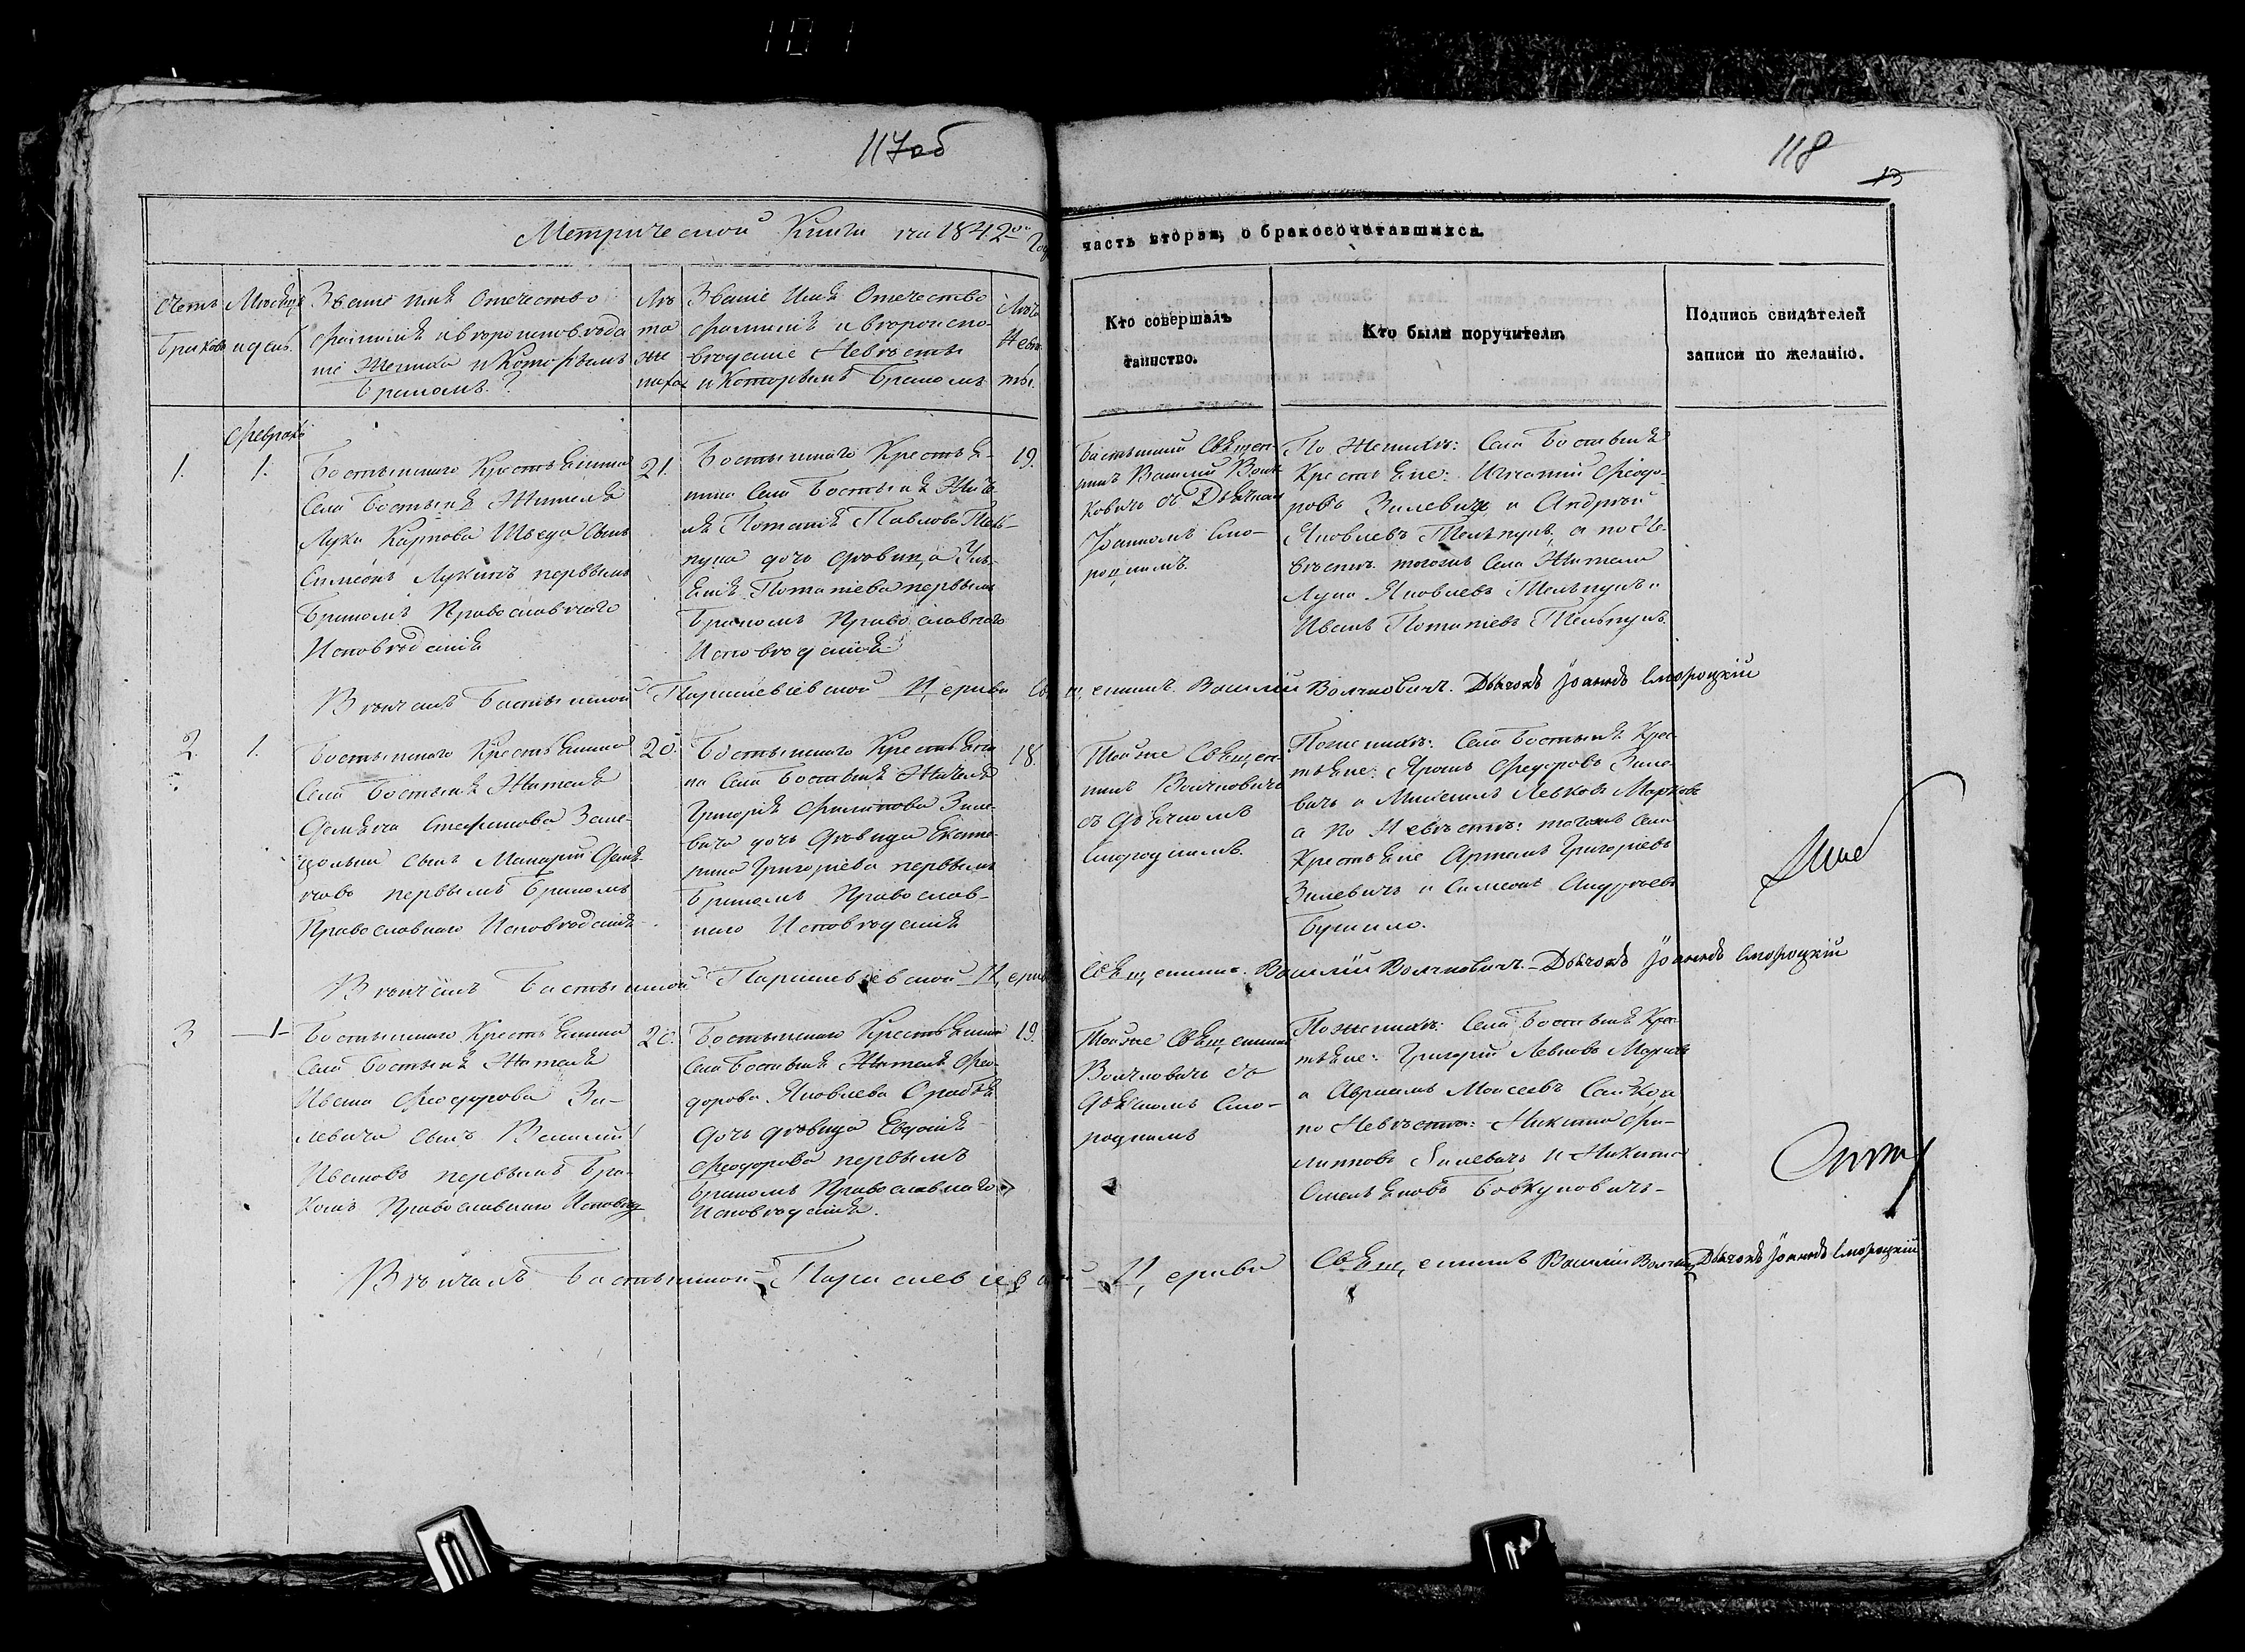 101
117об
118
13
Метрической Книги на 1842го Год
часть вторая, о бракосочетавшихся.
Счетъ
Браковъ
Мѣсяцъ
и день.
Званіе Имя Отечество
фамилія и вѣроисповѣда
ніе Жениха и Которымъ
Бракомъ?
Лѣ
та
же
ниха
Званіе Имя Отечество
фамилія и вѣроиспо-
вѣданіе Невѣсты
и Которымъ Бракомъ
Лѣта
Невѣс
ты.
Кто совершалъ
таинство.
Кто были поручители.
Подпись свидѣтелей
записи по желанію.
Февраль
1.
1.
Бостынскаго Крестьянина
Села Бостыня Жителя
Луки Карпова Шведа Сынъ
Симеонъ Лукинъ первымъ
Бракомъ Православнаго
Исповѣданія
21.
Бостынскаго Крестья-
нина Села Бостыня Жите-
ля Потапія Павлова Тель-
пука дочь дѣвица Уль-
яния Потапіева первымъ
Бракомъ Православнаго
Исповѣданія
19.
Бостынскій Священ-
никъ Василій Волч-
ковичъ съ Дьячкомъ
Іоанномъ Смо-
родскимъ.
По Женихѣ: Села Бостыня
Крестьяне: Игнатій Феодо-
ровъ Зилевичъ и Андрей
Яковлевъ Тельпукъ, а по Не-
вѣстѣ тогожъ Села Жители
Лука Яковлевъ Тельпукъ и
Иванъ Потапіевъ Тельпукъ.
Вѣнчалъ Бостынской Параскевіевской Церкви Священникъ Василій Волчковичъ. Дьячокъ Іоаннъ Смороцкій
2.
1.
Бостынскаго Крестьянина
Села Бостыня Жителя
Демьяна Стефанова
сынъ Макарій Демья-
новъ первымъ Бракомъ
Православнаго Исповѣданія
20.
Бостынскаго Крестьяни
на Села Бостыня Жителя
Григорія Филиппова Зиле-
вича дочь дѣвица Екате-
рина Григоріева первымъ
Бракомъ Православ-
наго Исповѣданія
18.
Тойже Священ-
никъ Волчковичъ
съ дьячкомъ
Смородскимъ.
По женихѣ: Села Бостыня Крес-
тьяне: Федоровъ Зиле-
вичъ и Михаилъ Левковъ Марковъ
а по Невѣстѣ: тогожъ Села
Крестьяне Артемъ Григорьевъ
Зилевичъ и Симеонъ Андреевъ
Вѣнчалъ Бостынской Параскевіевской Церкви Священникъ Василій Волчковичъ. Дьячокъ Іоаннъ Смороцкій
3
1
Бостынскаго Крестьянина
Села Бостыня Жителя
Ивана Феодорова Зи-
левича сынъ Василій
Ивановъ первымъ Бра-
комъ Православнаго Исповѣд
20.
Бостынскаго Крестьянина
Села Бостыня Жителя Фео-
дорова Яковлева
Дочь дѣвица Евдокія
Феодорова первымъ
Бракомъ Православнаго
Исповѣданія.
19.
Тойже Священникъ
Волчковичъ съ
дьячкомъ Смо-
родскимъ
По женихѣ: Села Бостыня Крес-
тьяне: Григорій Левковъ Марковъ
и Авраамъ Моисеевъ а
по Невѣстѣ: Никита Фи-
липповъ Зилевичъ и Никита
Омельяновъ Бовкуновичъ
Вѣнчалъ Бостынской Параскевіевской Церкви Священникъ Василій Волчков Дьячокъ Іоаннъ Смороцкій